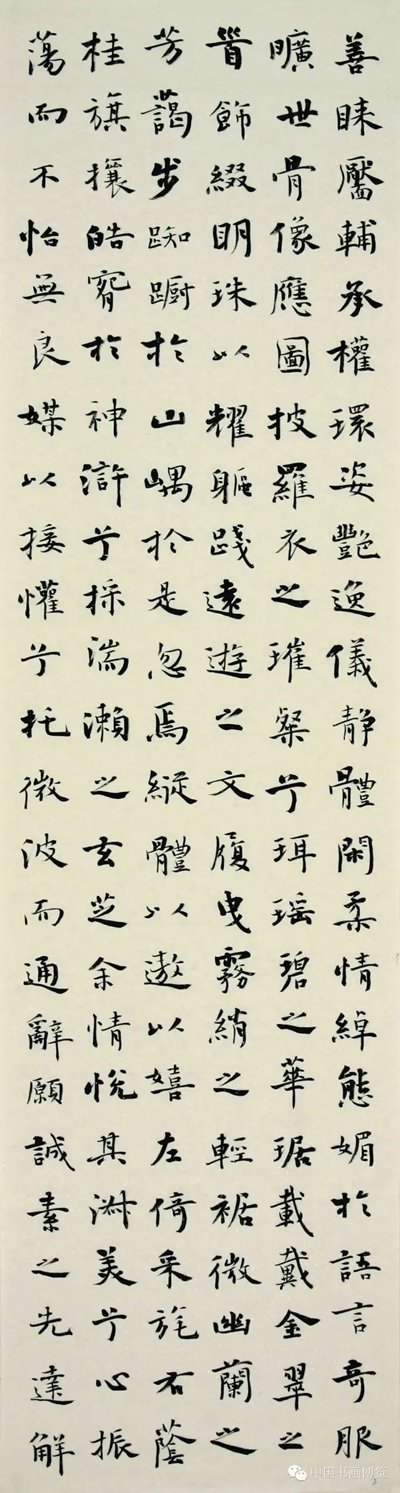 善睞靨輔承權環姿艷逸儀靜體閑柔情綽態媚於語言奇服
曠世骨像應圖披羅衣之璀粲兮珥瑶碧之華琚載戴金翠之
首飾綴明珠以耀軀踐遠遊之文履曳霧綃之輕裾微幽蘭之
芳藹步踟蹰於山嵎於是忽焉縱體以遨以嬉左倚采旄右蔭
桂旗攘皓腕於神滸兮採湍瀨之玄芝余情悅其淑美兮心振
蕩而不怡無良媒以接懽兮托微波而通辭願誠素之先達解
中国书画博览